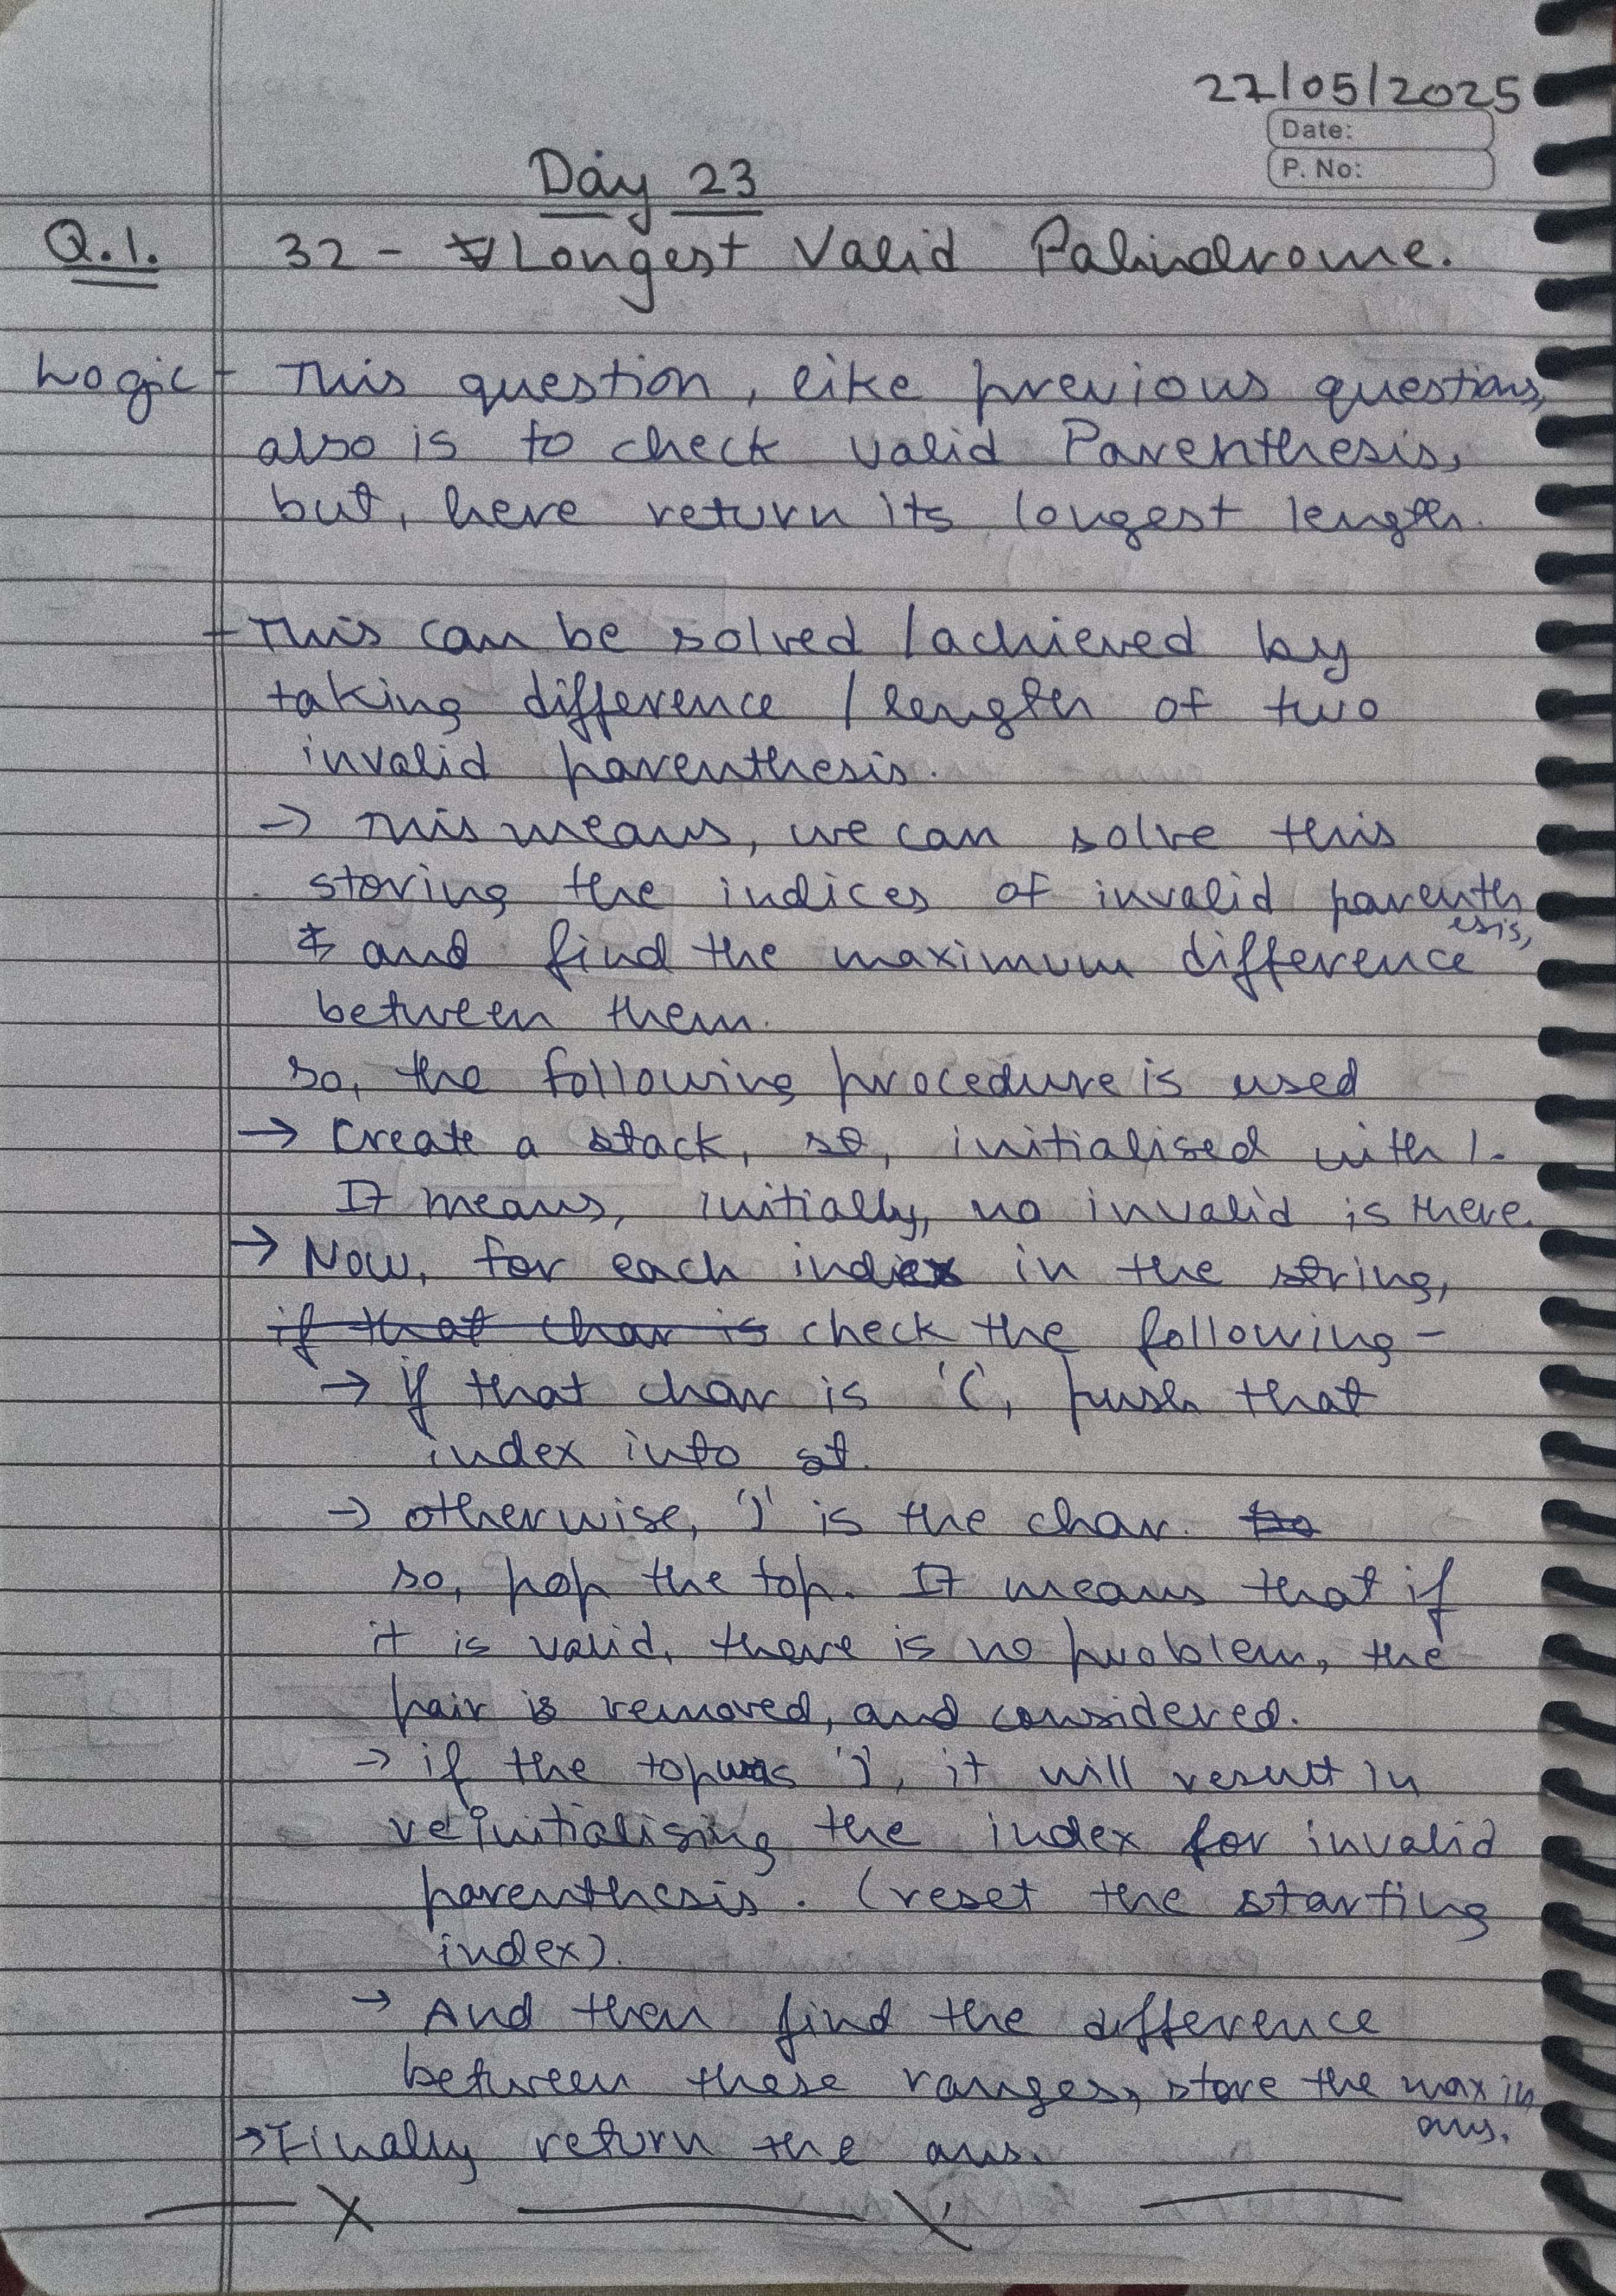 27/05/2025
Date:
P. No:
Day 23
Q.1. 32 - Longest Valid Palindrome.
Logic - This question, like previous questions,
also is to check valid Parenthesis,
but, here return its longest length.
- This can be solved / achieved by
taking difference / length of two
invalid parenthesis.
→ This means, we can solve this
storing the indices of invalid parenth
esis,
and find the maximum difference
between them.
so, the following procedure is used
→ Create a stack, st, initialised with 1.
It means, initially, no invalid is there.
→ Now, for each index in the string,
if that char is check the following -
→ if that char is '(', push that
index into st.
→ otherwise, ')' is the char.
so, pop the top. It means that if
it is valid, there is no problem, the
pair is removed, and considered.
→ if the top was ')', it will result in
reinitialising the index for invalid
parenthesis. (reset the starting
index).
→ And then find the difference
between these ranges, store the max in
ans.
→ Finally return the ans.